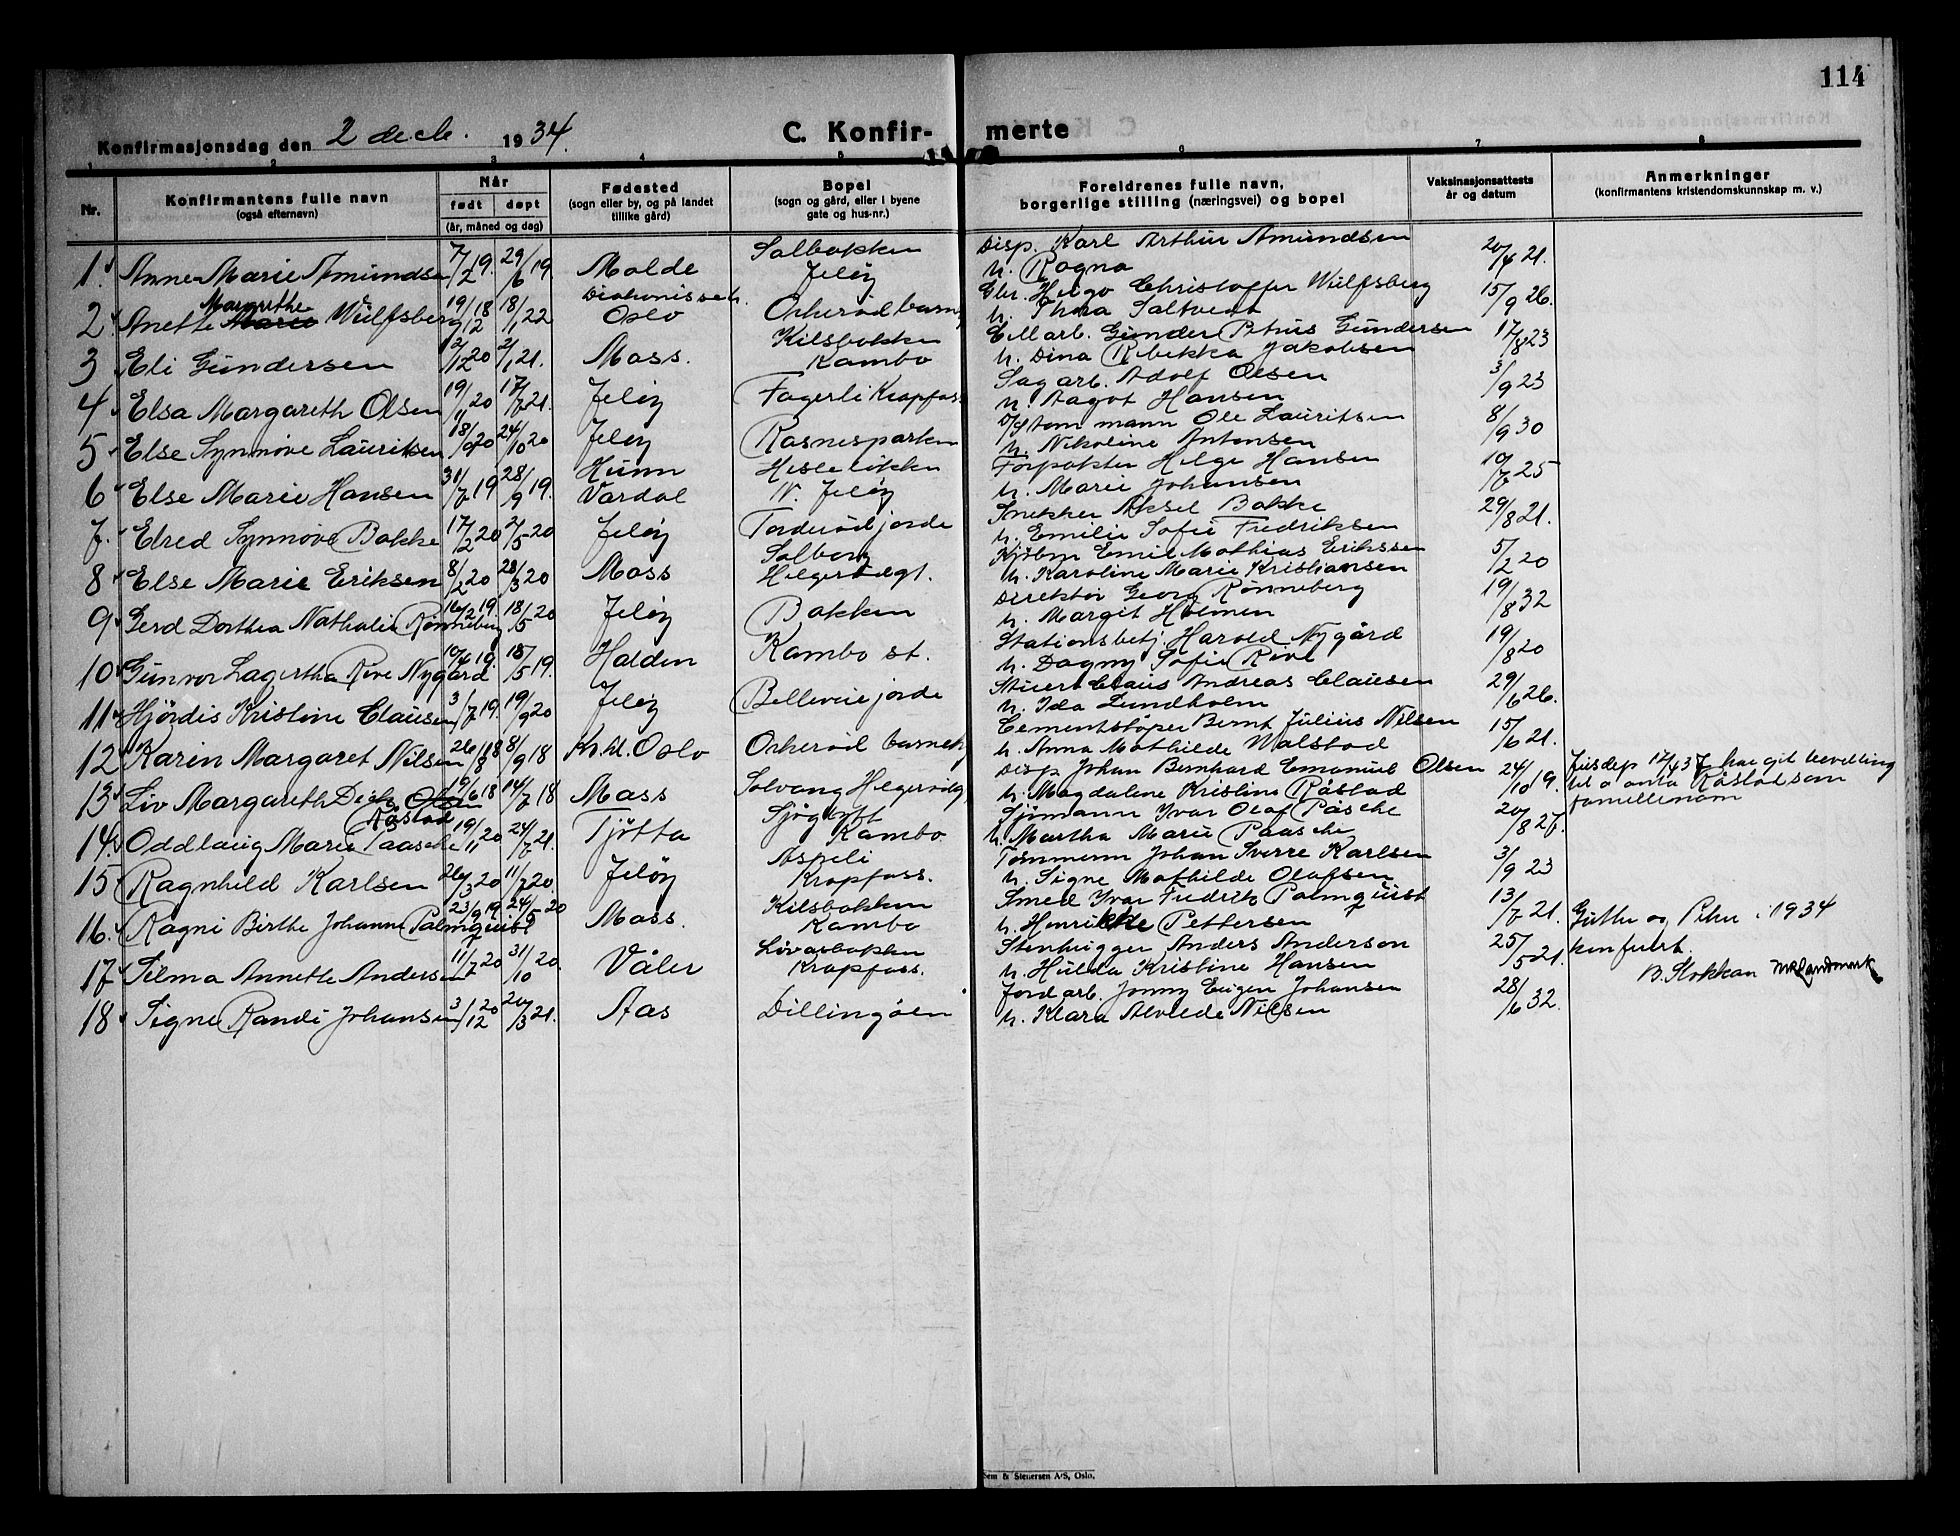 114
Konfirmasjonsdag den 2 decb. 1934.
C. Konfir- merte
1 2 3 4 5 6 7 8
Nr.
Konfirmantens fulle navn
(også efternavn)
Når
født døpt
(år, måned og dag)
Fødested
(sogn eller by, og på landet
tillike gård)
Bopel
(sogn og gård, eller i byene
gate og hus-nr.)
Foreldrenes fulle navn,
borgerlige stilling (næringsvei) og bopel
Vaksinasjonsattests
år og datum
Anmerkninger
(konfirmantens kristendomskunnskap m. v.)
1. Anne-Marie Amundsen 7/2 19. 29/6 19. Molde Solbakken Jeløy
Disp. Karl Arthur Amundsen
h. Ragna 20/4 21.
2 Anette Marie Margrethe Wulfsberg 19/12 18 18/1 22 Diakonisseh. Oslo Orkerød barneh
Gbr. Helge Christoffer Wulfsberg
h. Thea Saltvedt 15/9 26.
3 Eli Gundersen 2/12 20 2/1 21. Moss. Kilsbakken Kambo
Cell arb. Gunder Petrus Gundersen
h. Dina Rebekka Jakobsen 17/8 23
4 Elsa Margareth Olsen 19/11 20 17/7 21. Jeløy Fagerli Krapfoss
Sagarb. Adolf Olsen
h. Aagot Hansen 3/9 23
5 Else Synnøve Lauritsen 18/9 20 24/10 20 Jeløy Rosnesparken
mann Ole Lauritsen
h. Nikoline Antonsen 8/9 30
6 Else Marie Hansen 31/7 19 28/9 19. Hunn Vardal N. Jeløy
Forpakter Helge Hansen
h. Marie Johansen 19/7 25
7. Elred Synnøve Bakke 17/2 20 2/5 20 Jeløy Torderød jorde
Snekker Aksel Bakke
h. Emilie Sofie Fredriksen 29/8 21.
8 Else Marie Eriksen 8/2 20 28/3 20 Moss Solberg Helgerødgt.
Kjøbm Emil Mathias Erikssen
h. Karoline Marie Kristiansen 5/2 20
9 Gerd Dorthea Nathalie Rønneberg 16/12 19. 18/5 20 Jeløy Bakken
Direktør Georg Rønneberg
h. Margit Holmen 19/8 32
10 Gunvor Lagertha Rive Nygård 10/4 19. 18/5 19. Halden Kambo st.
Stationsbetj. Harold Nygård
h. Dagny Sofie Rive 19/8 20
11 Hjørdis Kristine Clausen 3/7 19. 19/9 20 Jeløy Bellevue jorde
Stuert Claus Andreas Clausen
h. Ida Lundholm 29/6 26.
12 Karin Margaret Nilsen 26/8 18 8/9 18 Kv.kl. Oslo Orkerød barneh
Cementstøper Bernt Julius Nilsen
h. Anna Mathilde Malstad 15/6 21.
13 Liv Margareth Olsen Råstad 19/6 18 14/7 18 Moss Solvang Helgerødg
Disp Johan Bernhard Emanuel Olsen
h. Magdalene Kristine Råstad 24/10 19.
Jusdep 12/6 37 har git bevilling
til å anta Råstad som
familienavn
14. Oddlaug Marie Paasche 19/11 20 24/7 21. Tjøtta Sjøgløtt Kambo
Sjømann Ivar Olaf Påsche
h. Martha Marie Paasche 20/8 27.
15 Ragnhild Karlsen 26/3 20 11/7 20. Jeløy Aspeli Krapfoss.
Tømmerm Johan Sverre Karlsen
h. Signe Mathilde Olafsen 3/9 23
16. Ragni Birthe Johanne Palmquist 23/9 19 24/5 20 Moss. Kilsbakken Kambo
Smed Ivar Fredrik Palmquist
h. Henrikke Pettersen 13/7 21.
Guthe og Piker i 1934
konfulrt.
B. Stokkan
17 Selma Annethe Andersen 11/7 20 31/10 20. Våler Lövasbakken Krapfoss.
Stenhugger Anders Anderson
h. Hulda Kristine Hansen 25/5 21.
18 Signe Randi Johansen 3/12 20 20/3 21. Aas Dillingøen
Jordarb. Jonny Eugen Johansen
h. Klara Alvilde Nilsen 28/6 32.
Sem & Stenersen A/S, Oslo.